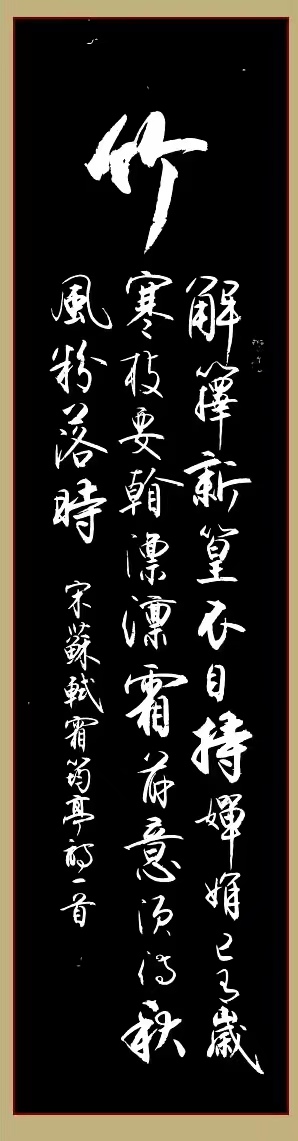 竹
解籜新篁不自持嬋娟已有歲
寒枝要看凜凜霜前意須待秋
風粉落時
宋蘇軾霜筠亭詩一首